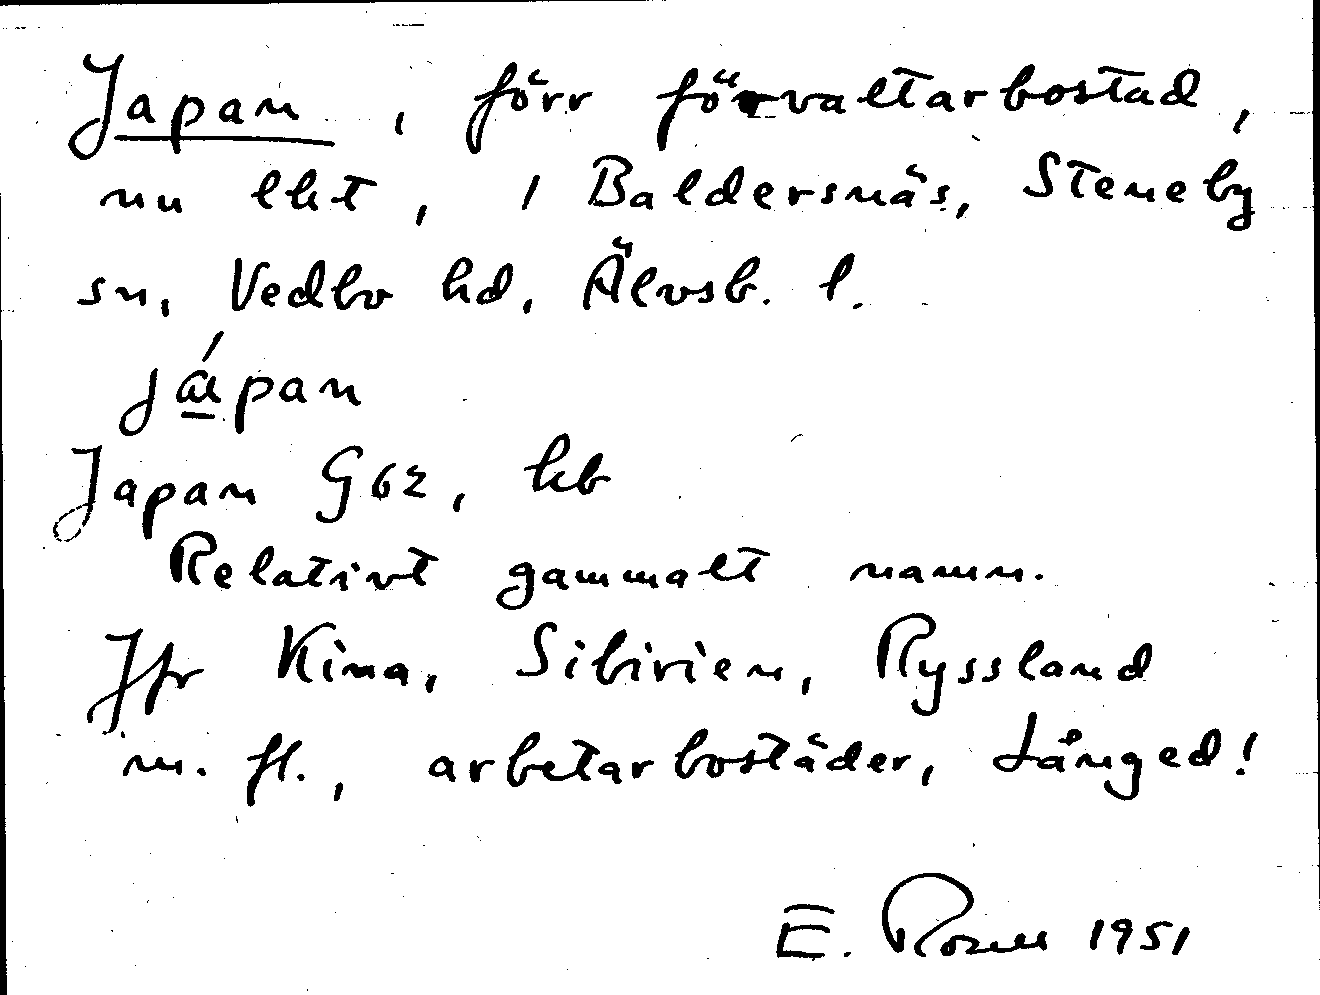 Japan, förr förvaltarbostad,
nu lht, i Baldersnäs, Steneby
sn, Vedbo hd, Älvsb. l.
já̱pan
Japan G62, kb
Relativt gammalt namn.
Jfr Kina, Sibirien, Ryssland
m. fl., arbetarbostäder, Långed!
E. Rosell 1951